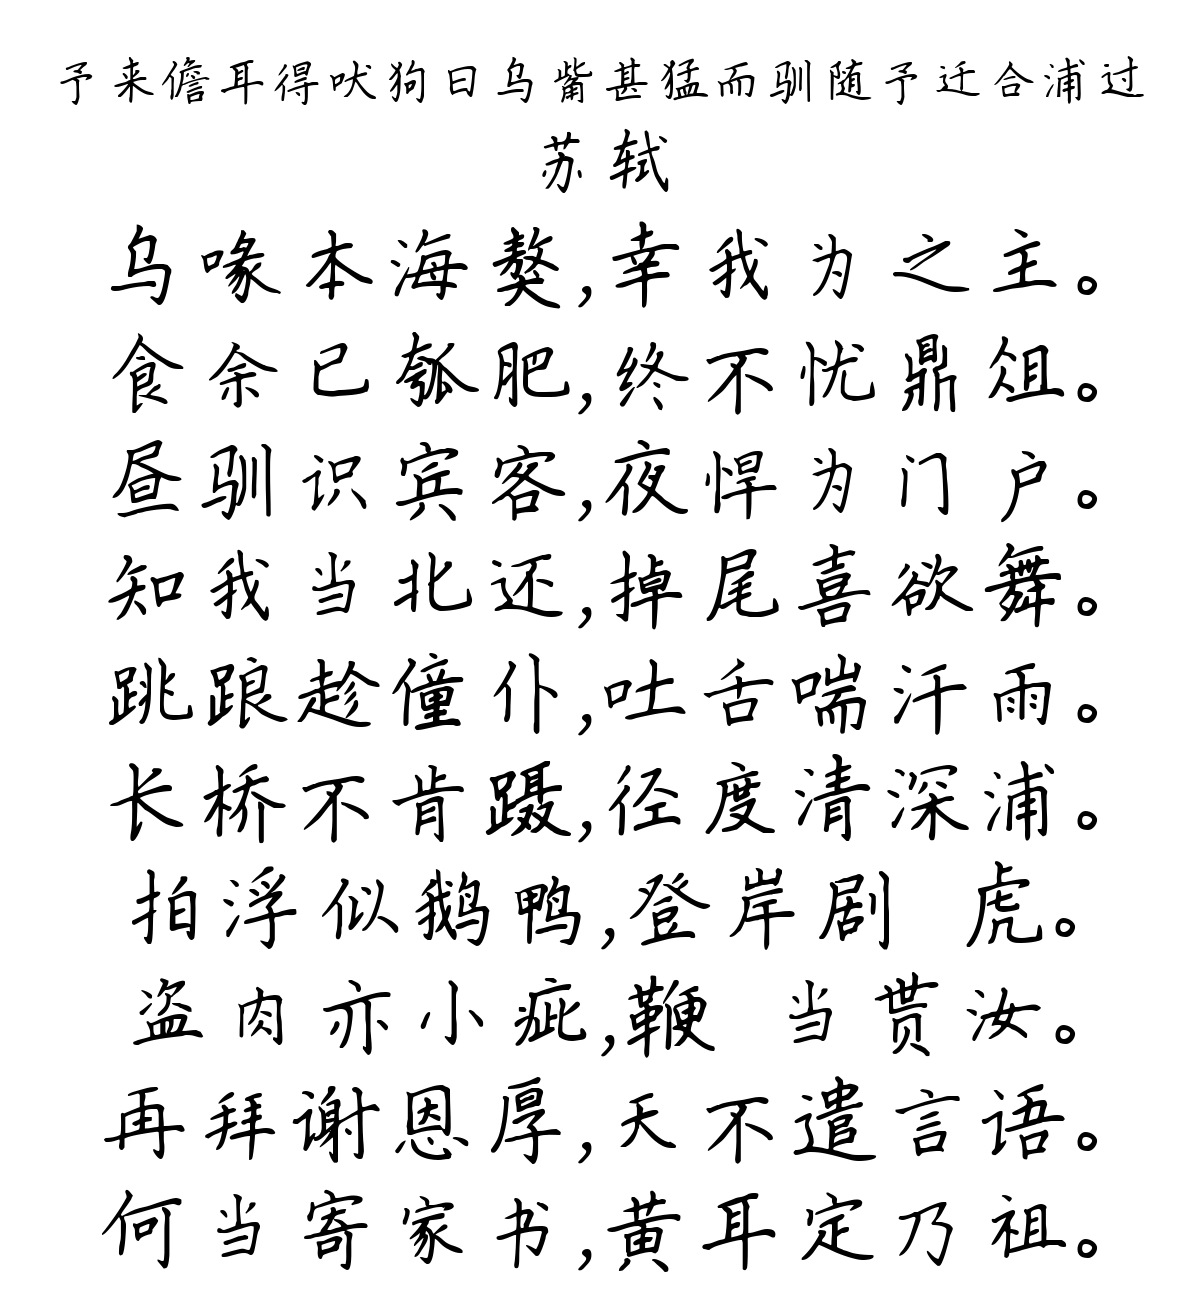 予来儋耳得吠狗曰乌觜甚猛而驯随予迁合浦过
苏轼
乌喙本海獒,幸我为之主。
食余已瓠肥,终不忧鼎俎。
昼驯识宾客,夜悍为门户。
知我当北还,掉尾喜欲舞。
跳踉趁僮仆,吐舌喘汗雨。
长桥不肯蹑,径度清深浦。
拍浮似鹅鸭,登岸剧 虎。
盗肉亦小疵,鞭 当贳汝。
再拜谢恩厚,天不遣言语。
何当寄家书,黄耳定乃祖。